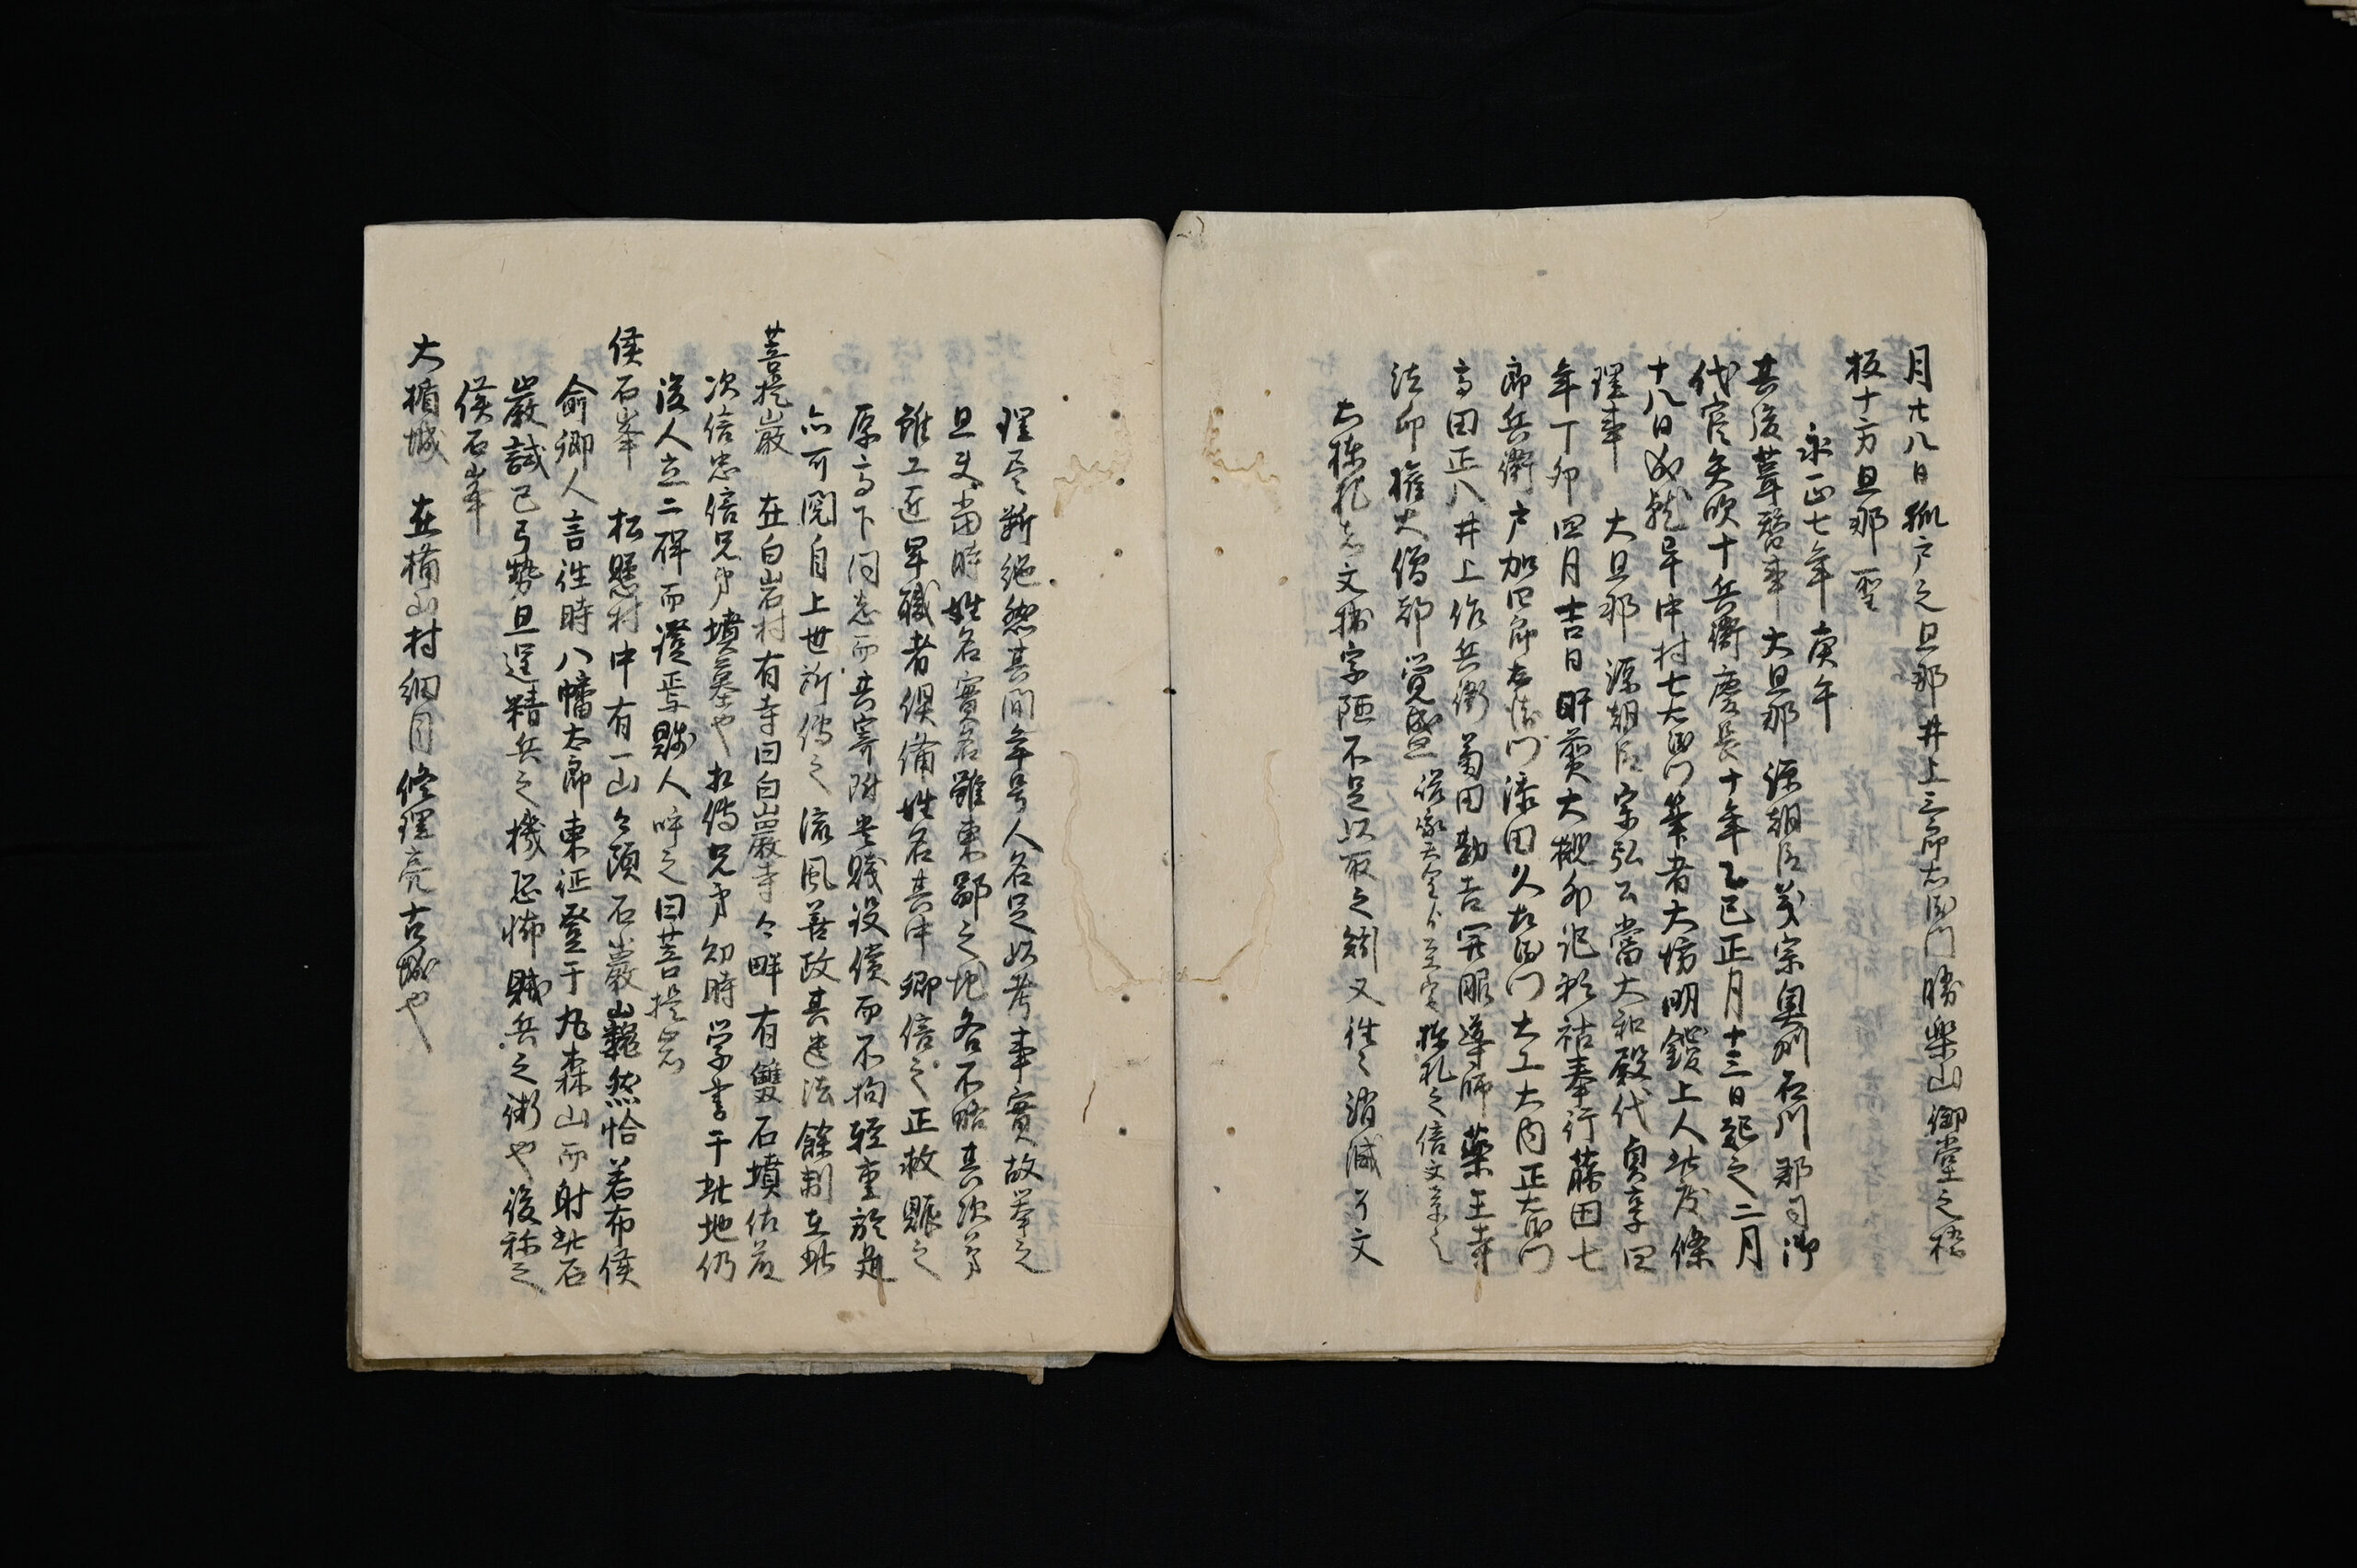 月廿八日狐戸之旦那井上三郎右衛門勝楽山御堂之棓
板十方旦那聖
永正七年庚午
其後葺替事大旦那源朝臣義宗奥州石川郡司御
代官矢吹十兵衛慶長十年乙巳正月十三日起之二月
十八日成就畢中村七右衛門筆者大坊明鍐上人此度條
理事大旦那源朝臣宗弘公當大和殿代貞享四
年丁卯四月吉日肝煎大槻外記稅祜奉行藤田七
郎兵衛戸加四郎右衛門添田久右衛門大工大内正右衛門
高田正八井上作兵衛菊田勘吉開眼導師薬王寺
法印権大僧都覚盛棟札之倍文
右棟札者文拙字陋不足以取之閲又往々消滅了文
理尽断絶然其間年号人名足以考事實故挙之
且夫當時姓名實名雖東鄙之地各不略其次第
雖工匠卑職者俱備姓名其中郷信之正敕賑之
原高下同志而共寄附貴賤設償而不拘軽重於是
亦可閲自上世所傳之流風善政其遺法餘制在此
菩提巌 在白岩村有寺曰白巌寺々畔有雙石墳佐藤
次信忠信兄弟墳墓也相傳兄弟幼時学書于此地仍
後人立二碑而證焉縣人呼之曰菩提岩
侯石峯 松懸村中有一山々頭石巌山巍然恰若布侯
俞郷人言往時八幡太郎東征登于丸森山而射此石
巌試己弓勢且逞精兵之機恐怖賊兵之術也後称之
侯石峯
大楯城 在楯山村細目修理亮古城也